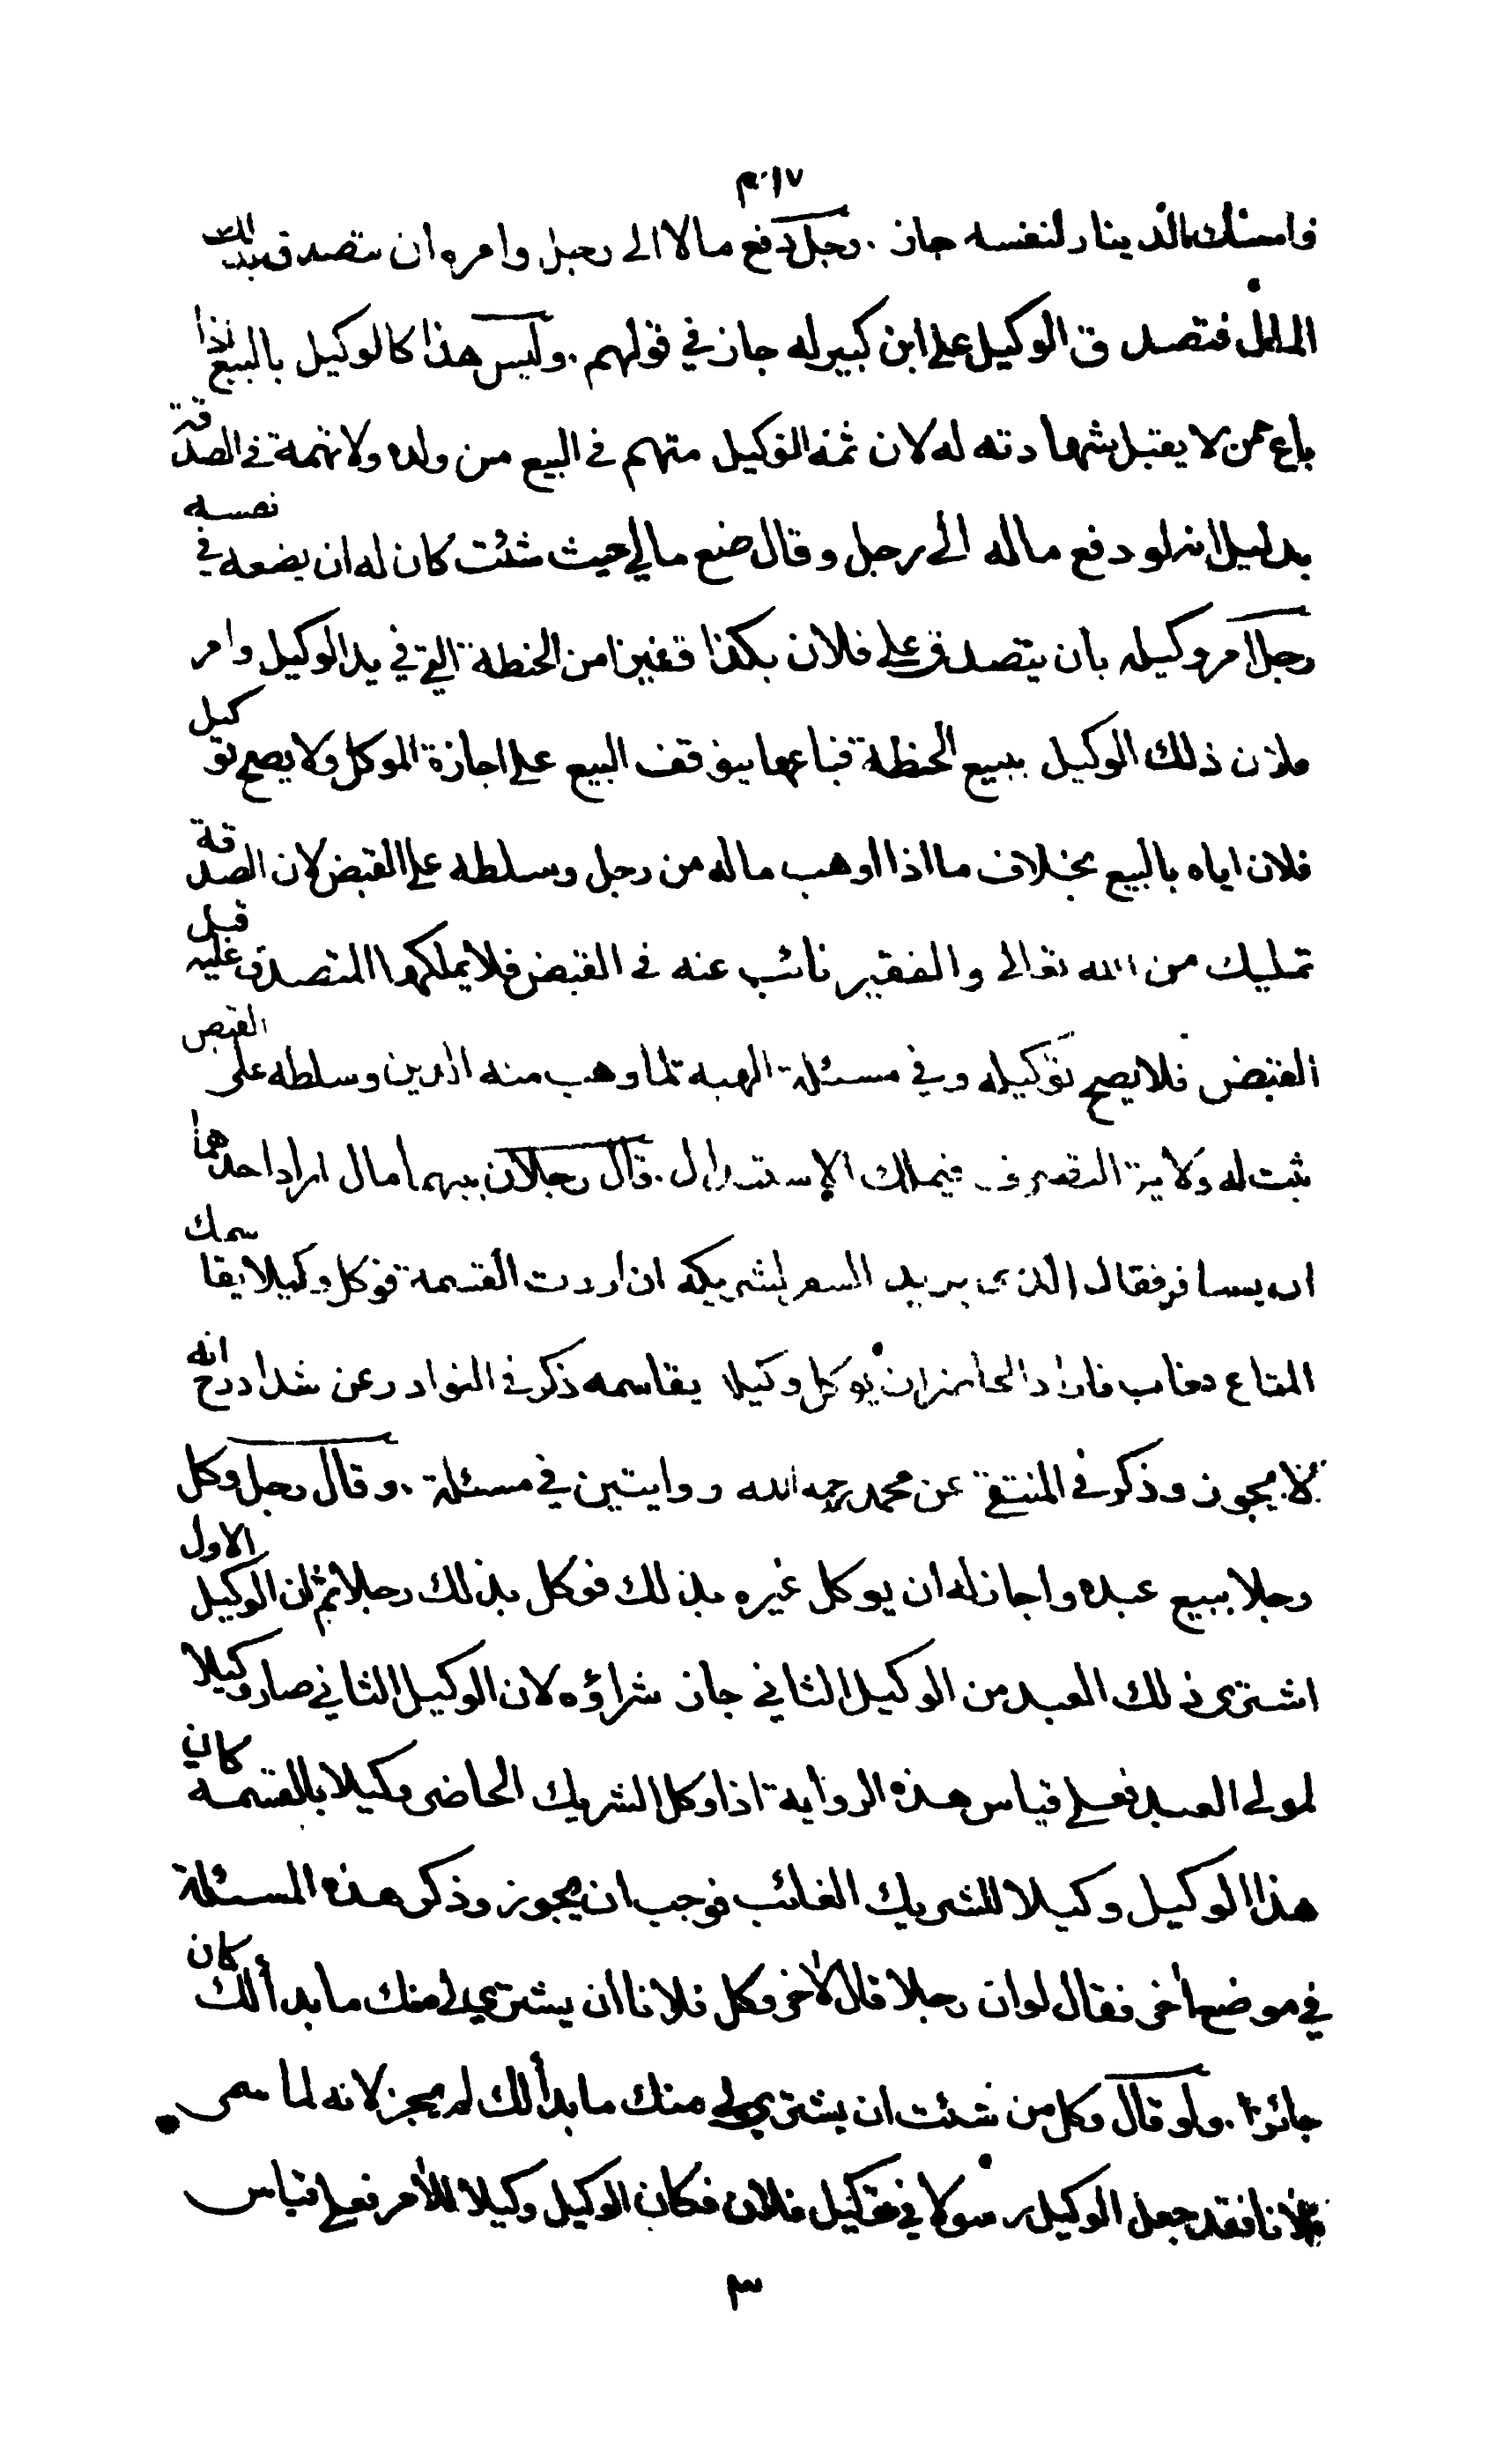 ٣٠١٧
فامسك الدينار لنفسه جاز . رجل دفع مالا الى رجل وامره ان يتصدق بذلك
المال فتصدق الوكيل على ابن كبير له جاز في قولهم . وليس هذا كالوكيل بالبيع اذا
باع ممن لا يقبل شهادته له لان ثمة الوكيل متهم في البيع من ولده ولا تهمة في الصدقة
بدليل انه لو دفع ماله الى رجل وقال ضع مالي حيث شئت كان له ان يضعه في نفسه
رجل امر وكيله بان يتصدق على فلان بكذا قفيزا من الحنطة التي في يد الوكيل وامر
فلان ذلك الوكيل ببيع الحنطة فباعها يتوقف البيع على اجازة الموكل ولا يصح توكيل
فلان اياه بالبيع بخلاف ما اذا اوهب ماله من رجل وسلطه على القبض لان الصدقة
تمليك من الله تعالى والفقير نائب عنه في القبض فلا يملكها المتصدق عليه قبل
القبض فلا يصح توكيله وفي مسئلة الهبة لما وهب منه الدين وسلطه على القبض
ثبت له ولاية التصرف فيملك الاستبدال . قال رجلان بينهما مال اراد احدهما
ان يسافر فقال الذي يريد السفر لشريكه ان اردت القسمة فوكل وكيلا يقاسمك
المتاع فغاب فاراد الحاضر ان يوكل وكيلا يقاسمه ذكر في النوادر عن شداد رح انه
لا يجوز وذكر في المنتقى عن محمد رحمه الله روايتين في مسئلة . وقال رجل وكل
رجلا ببيع عبده واجاز له ان يوكل غيره بذلك فوكل بذلك رجلا ثم ان الوكيل الاول
اشترى ذلك العبد من الوكيل الثاني جاز شراؤه لان الوكيل الثاني صار وكيلا
لمولى العبد فعلى قياس هذه الرواية اذا وكل الشريك الحاضر وكيلا بالقسمة كان
هذا الوكيل وكيلا للشريك الغائب فوجب ان يجوز وذكر هذه المسئلة
في موضع اخر فقال لو ان رجلا قال لآخر وكل فلانا ان يشتري لي منك ما بدا لك كان
جائزا . ولو قال وكل من شئت ان يشتري لي منك ما بدا لك لم يجز لانه لما سمى
فلانا فقد جعل الوكيل رسولا في توكيل فلان فكان الوكيل وكيلا للآمر فعلى قياس
٣